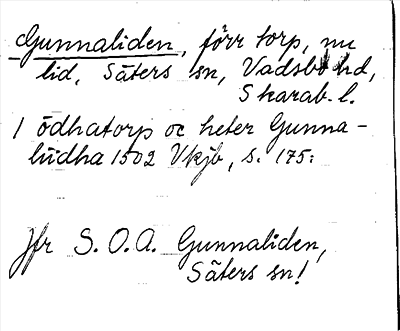 Gunnaliden, förr torp, nu
lid, Säters sn, Vadsbo hd,
Skarab. l.
1 ödhatorp oc heter Gunna-
liidha 1502 Vkjb, s. 175:
Jfr S. O. A. Gunnaliden,
Säters sn!